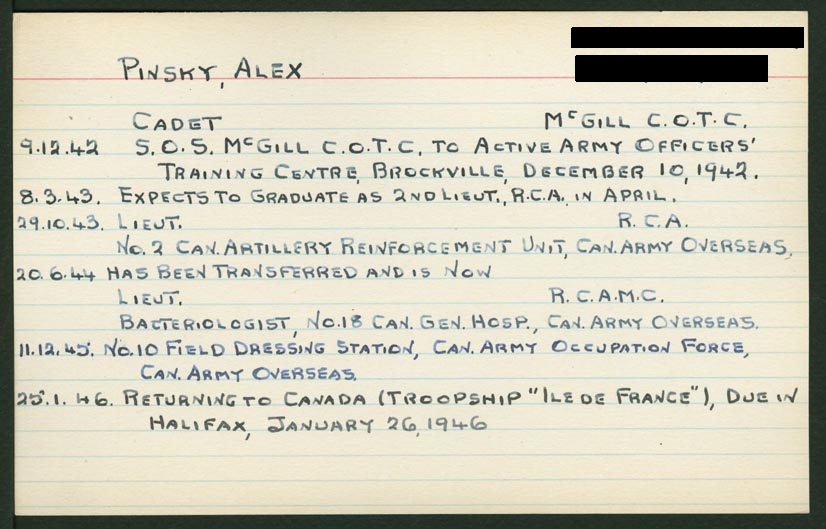 PINSKY, ALEX
CADET McGILL C.O.T.C.
9.12.42 S.O.S. McGILL C.O.T.C. TO ACTIVE ARMY OFFICERS'
TRAINING CENTRE, BROCKVILLE, DECEMBER 10, 1942.
8.3.43. EXPECTS TO GRADUATE AS 2ND LIEUT., R.C.A. IN APRIL.
29.10.43. LIEUT. R.C.A.
No. 2 CAN. ARTILLERY REINFORCEMENT UNIT, CAN. ARMY OVERSEAS.
20.6.44 HAS BEEN TRANSFERRED AND IS NOW
LIEUT. R.C.A.M.C.
BACTERIOLOGIST, No. 18 CAN. GEN. HOSP., CAN. ARMY OVERSEAS.
11.12.45. No. 10 FIELD DRESSING STATION, CAN. ARMY OCCUPATION FORCE,
CAN. ARMY OVERSEAS.
25.1.46. RETURNING TO CANADA (TROOPSHIP "ILE DE FRANCE"), DUE IN
HALIFAX, JANUARY 26, 1946